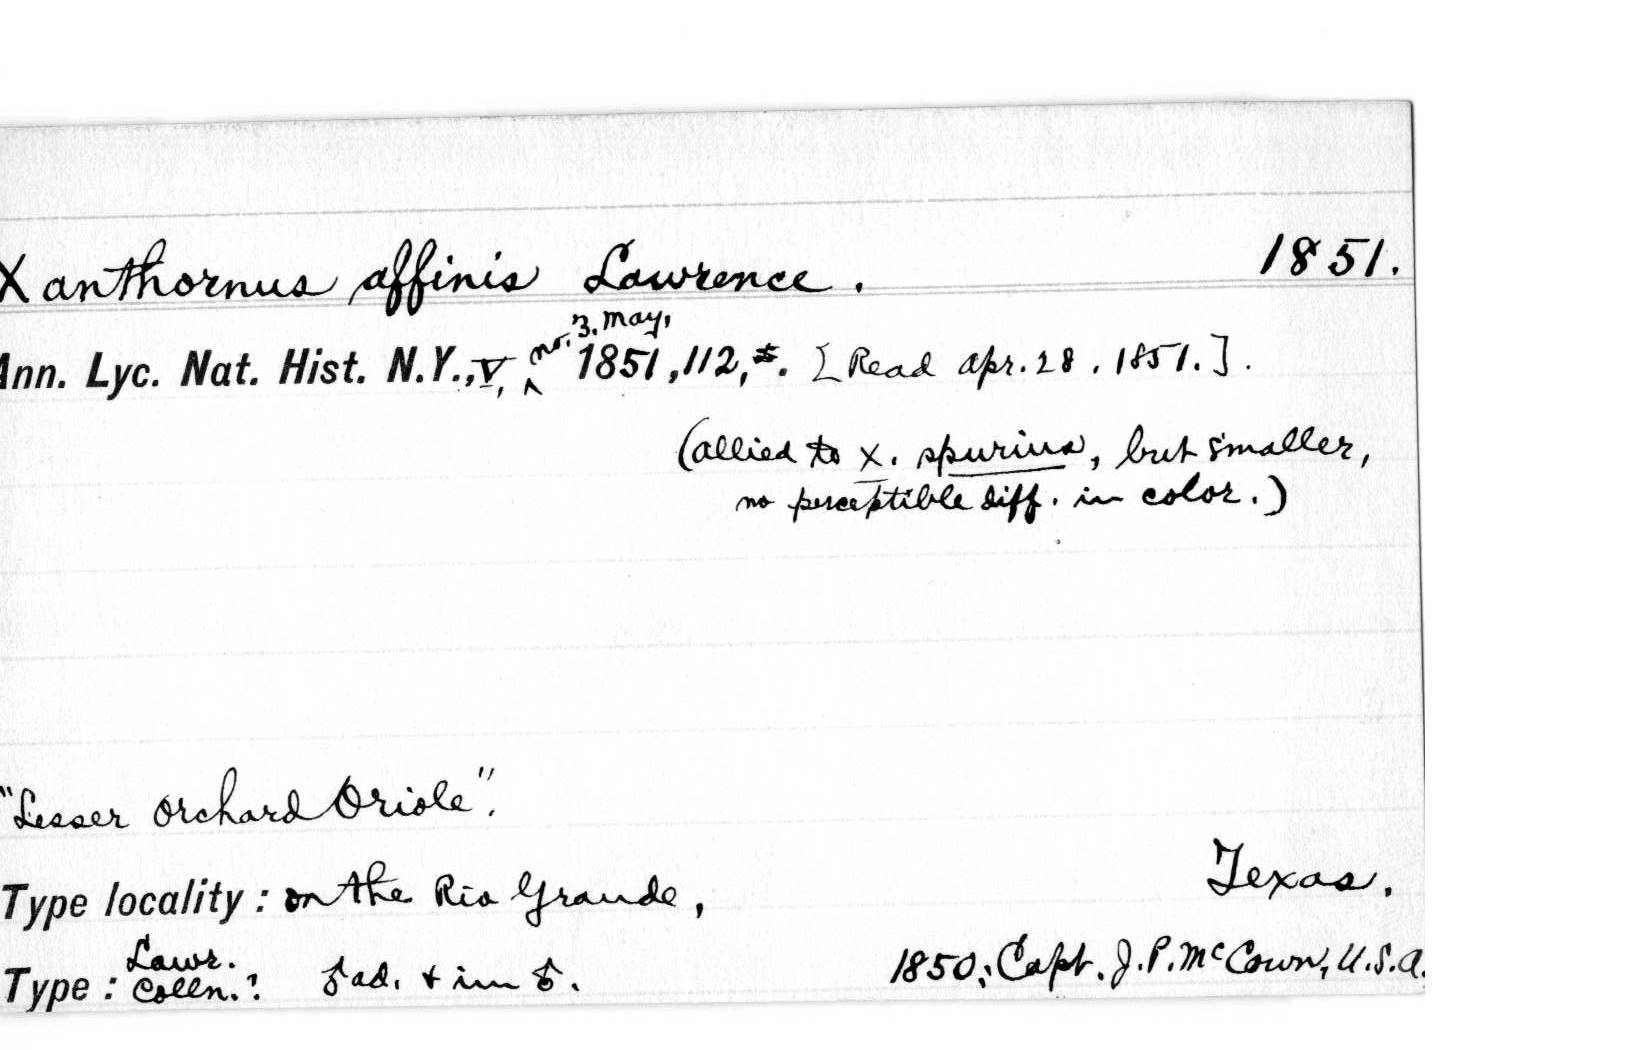 Xanthornus affinis Lawrence. 1851.
Ann. Lyc. Nat. Hist. N.Y., V, no. 3. May, 1851, 112, *. [Read Apr. 28. 1851.].
(allied to X. spurius, but smaller,
no perceptible diff. in color.)
"Lesser Orchard Oriole".
Type locality: on the Rio Grande, Texas.
Type: Lawr. Colln.? ♂ ad. + im ♂. 1850; Capt. J. P. McCown, U.S.A.